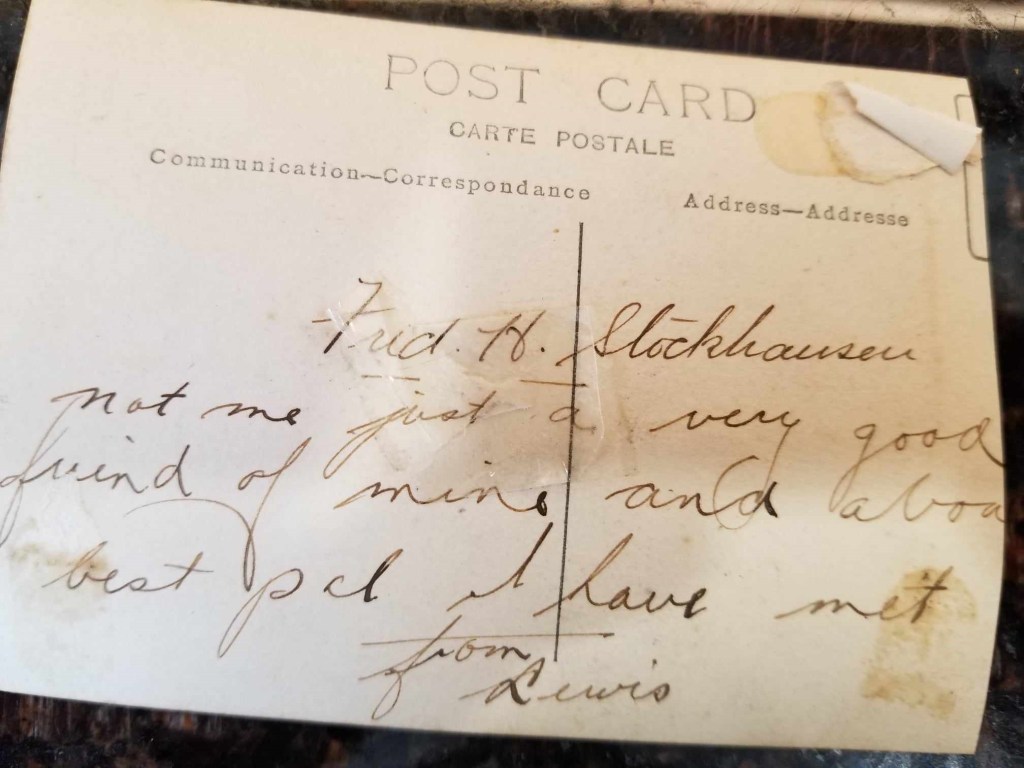 POST CARD
CARTE POSTALE
Communication—Correspondance
Address—Addresse
Fred. H. Stockhausen
not me just a very good
friend of mine and abou
best pal I have met
from
Lewis